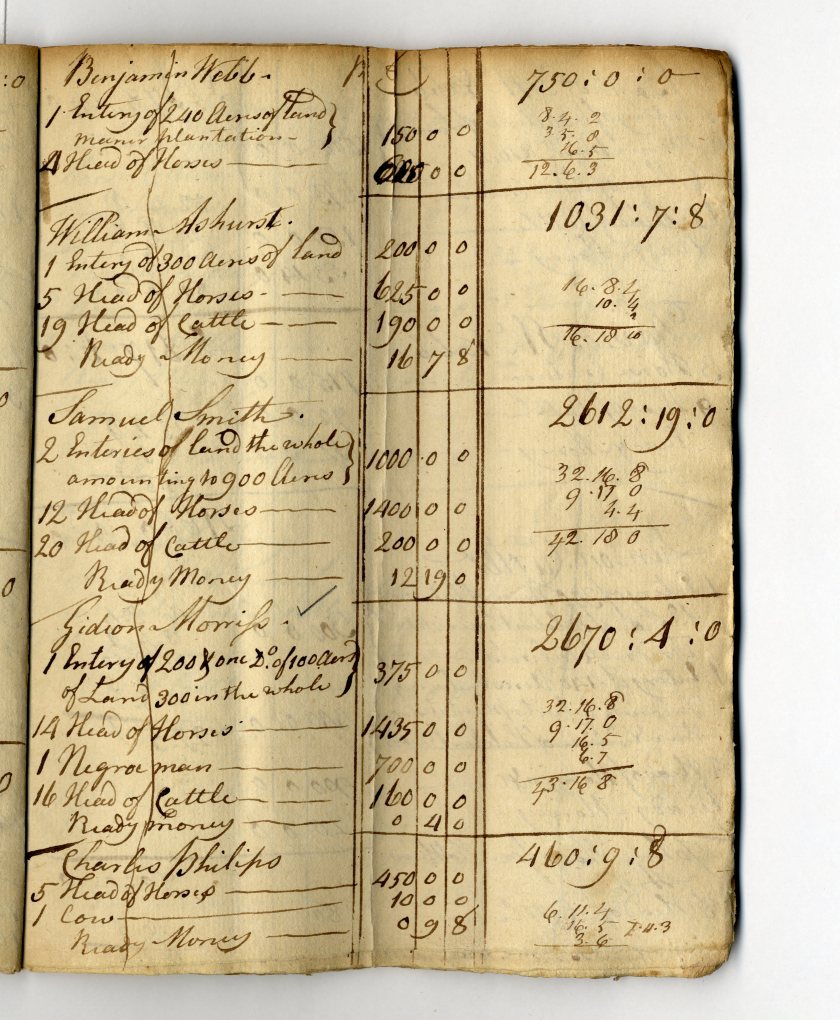 :0
Benjamin Webb 750:0:0
1 Entery of 240 Acres of land 8.4.2
maner plantation 150 0 0 3.5.0
16.5
4 Head of Horses 0 0 12.6.3
William Ashurst. 1031:7:8
1 Entery of 300 Acres of land 200 0 0
5 Head of Horses 625 0 0 16.8.4
10.4
19 Head of Cattle 190 0 0
16.18 10
Ready Money 16 7 8
Samuel Smith. 2612:19:0
2 Enteries of land the whole 1000 0 0
amounting to 900 Acres 32.16.8
9.17 0
12 Head of Horses 1400 0 0 4.4
20 Head of Cattle 200 0 0 42.18 0
Ready Money 12 19 0
Gideon Morriss. 2670:4:0
1 Entery of 200 & one Do. of 100 Acres 375 0 0
of Land 300 in the whole 32.16.8
14 Head of Horses 1435 0 0 9.17.0
16.5
1 Negroe man 700 0 0 6.7
16 Head of Cattle 160 0 0 43.16 8
Ready money 0 4 0
Charles Philips 460:9:8
5 Head of Horses 450 0 0
1 Cow 10 0 0 6.11.4
Ready Money 0 9 8 16.5
3.6